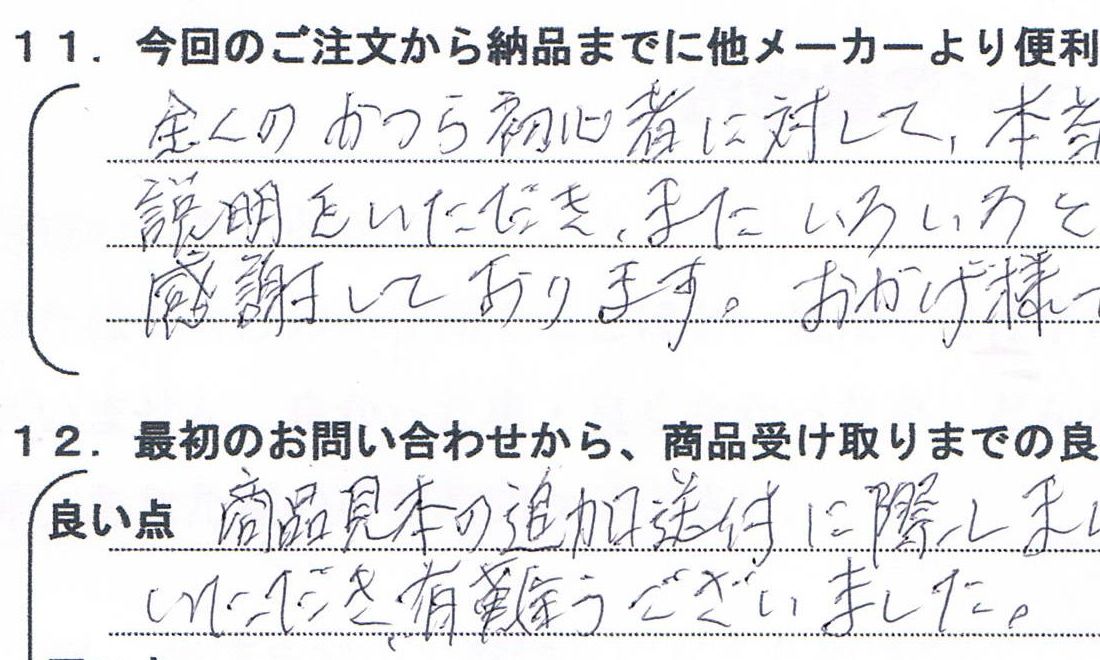 １１．今回のご注文から納品までに他メーカーより便利
全くのかつら初心者に対して、本当
説明をいただき、また いろいろと
感謝しております。おかげ様で
１２．最初のお問い合わせから、商品受け取りまでの良
良い点 商品見本の追加送付に際しまし
いただき、有難うございました。